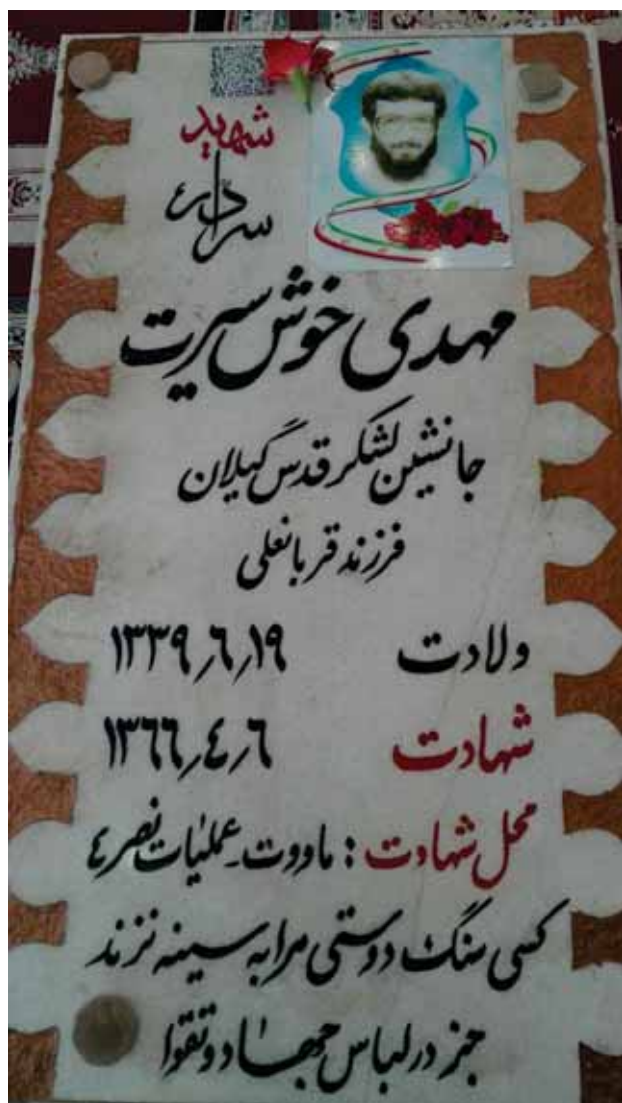 شهید
سردار
مهدی خوش سیرت
جانشین لشکر قدس گیلان
فرزند قربانعلی
ولادت ۱۳۳۹٫۶٫۱۹
شهادت ۱۳۶۶٫۴٫۶
محل شهادت : ماووت ـ عملیات نصر ٤
کسی سنگ دوستی مرا به سینه نزند
جز در لباس جهاد و تقوا